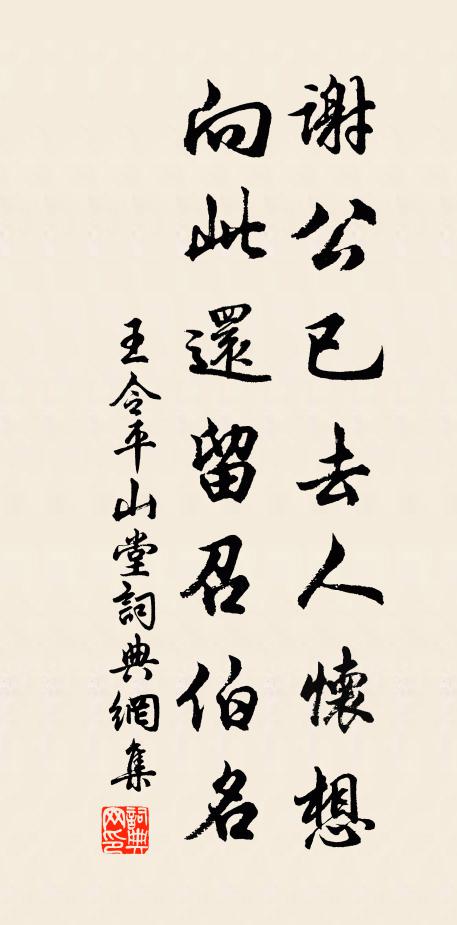 謝公已去人懷想
向此還留召伯名
王令平山堂詞典網集
詞典
網印